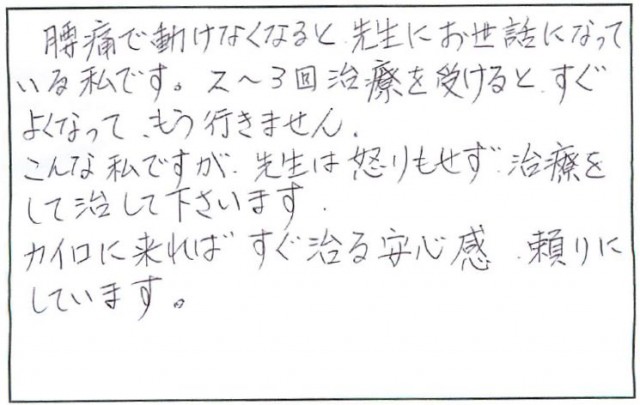 腰痛で動けなくなると、先生にお世話になって
いる私です。2〜3回治療を受けると、すぐ
よくなって、もう行きません。
こんな私ですが、先生は怒りもせず、治療を
して治して下さいます。
カイロに来れば すぐ治る安心感、頼りに
しています。